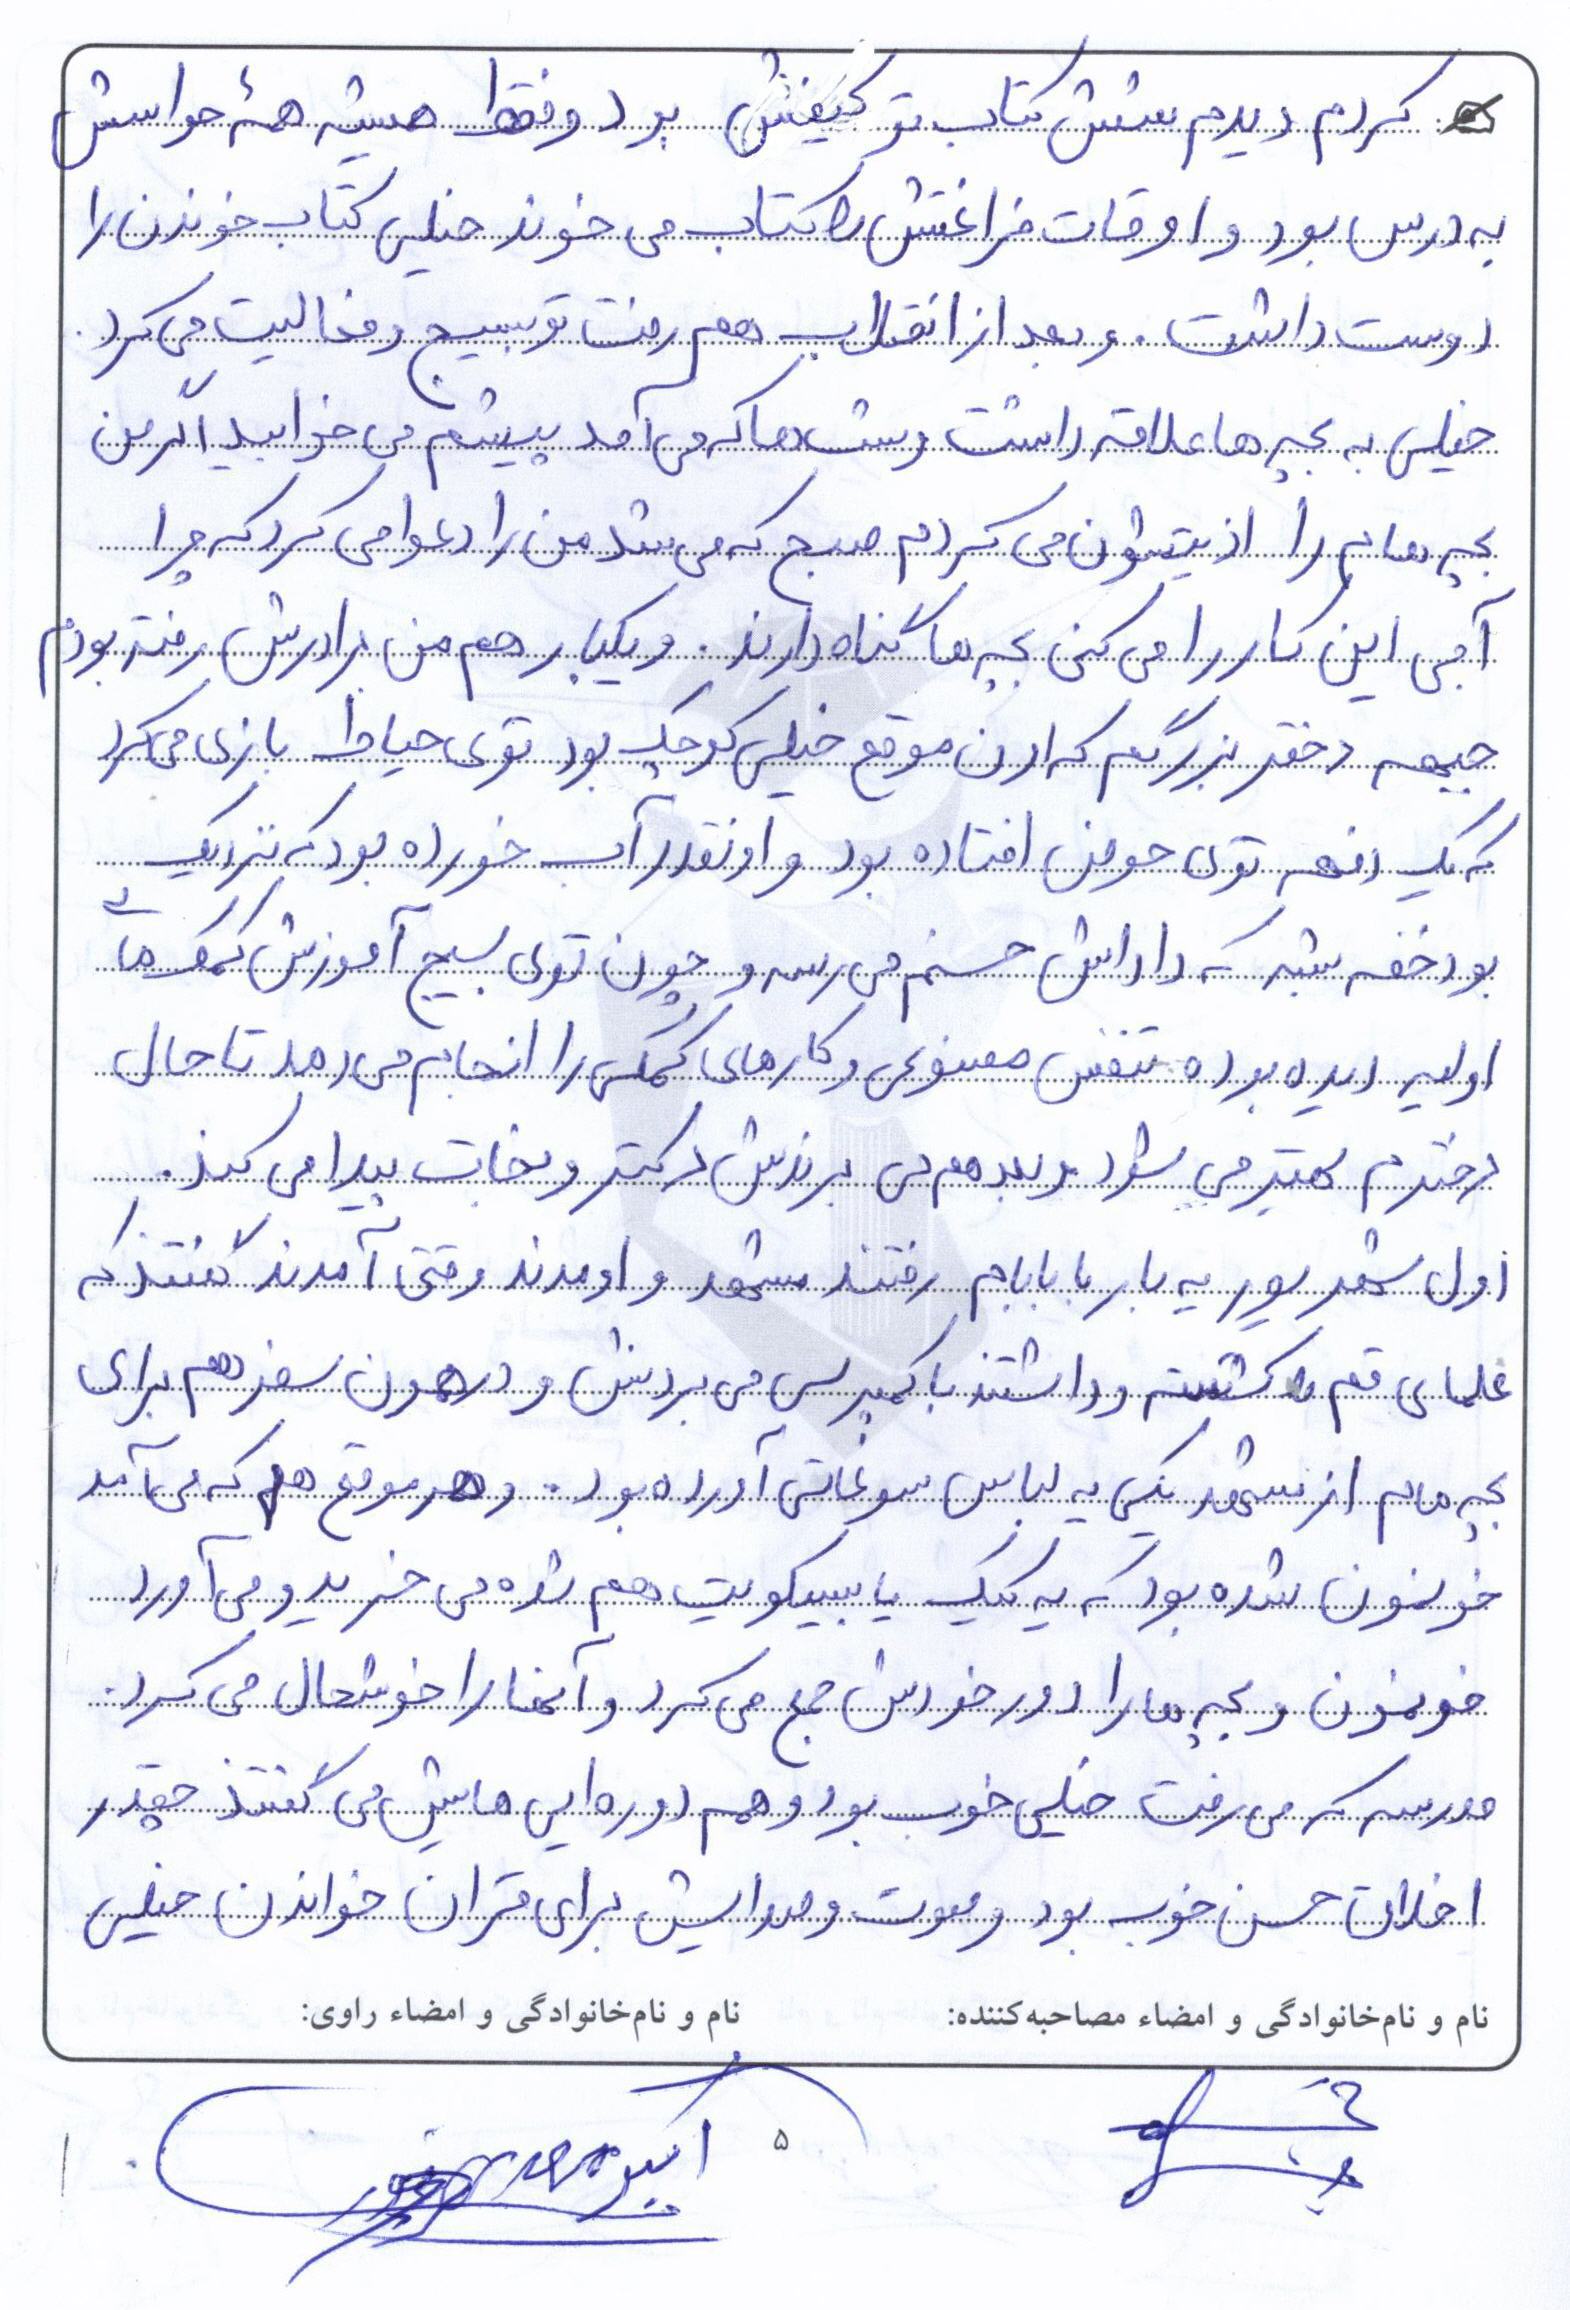 کردم دیدم شش کتاب تو کیفش بود و فقط همیشه همهٔ حواسش
به درس بود و اوقات فراغتش را کتاب می خوند خیلی کتاب خوندن را
دوست داشت . و بعد از انقلاب هم رفت تو بسیج و فعالیت می کرد .
خیلی به بچه ها علاقه داشت و شب ها که می آمد پیشم می خوابید اگر من
بچه هام را اذیتشون می کردم صبح که می شد من را دعوا می کرد که چرا
آجی این کار را می کنی بچه ها گناه دارند . و یکبار هم من برادرش رفته بودم
جبهه دختر بزرگم که اون موقع خیلی کوچک بود توی حیاط بازی می کرد
که یک دفعه توی حوض افتاده بود و اونقدر آب خورده بود که نزدیک
بود خفه شه که داداش حسنم می رسه و چون توی بسیج آموزش کمک های
اولیه دیده بوده تنفس مصنوعی و کارهای کمکی را انجام می دهد تا حال
دخترم بهتر می شود و بعد هم می برندش دکتر و نجات پیدا می کند .
اول شهریور یه بار با بابام رفتند مشهد و اومدند وقتی آمدند گفتند که
علمای قم را کشته و داشتند با کمپرسی می بردنش و در همون سفر هم برای
بچه هام از مشهد یکی یه لباس سوغاتی آورده بود . و هر موقع هم که می آمد
خونمون شده بود که یه کیک یا بیسکویت هم شده می خرید و می آورد
خونمون و بچه ها را دور خودش جمع می کرد و آنها را خوشحال می کرد .
مدرسه که می رفت خیلی خوب بود و هم دوره ایی هایش می گفتند چقدر
اخلاق حسن خوب بود و صوت و صدایش برای قران خواندن خیلی
نام و نام‌خانوادگی و امضاء مصاحبه‌کننده: نام و نام‌خانوادگی و امضاء راوی:
۵